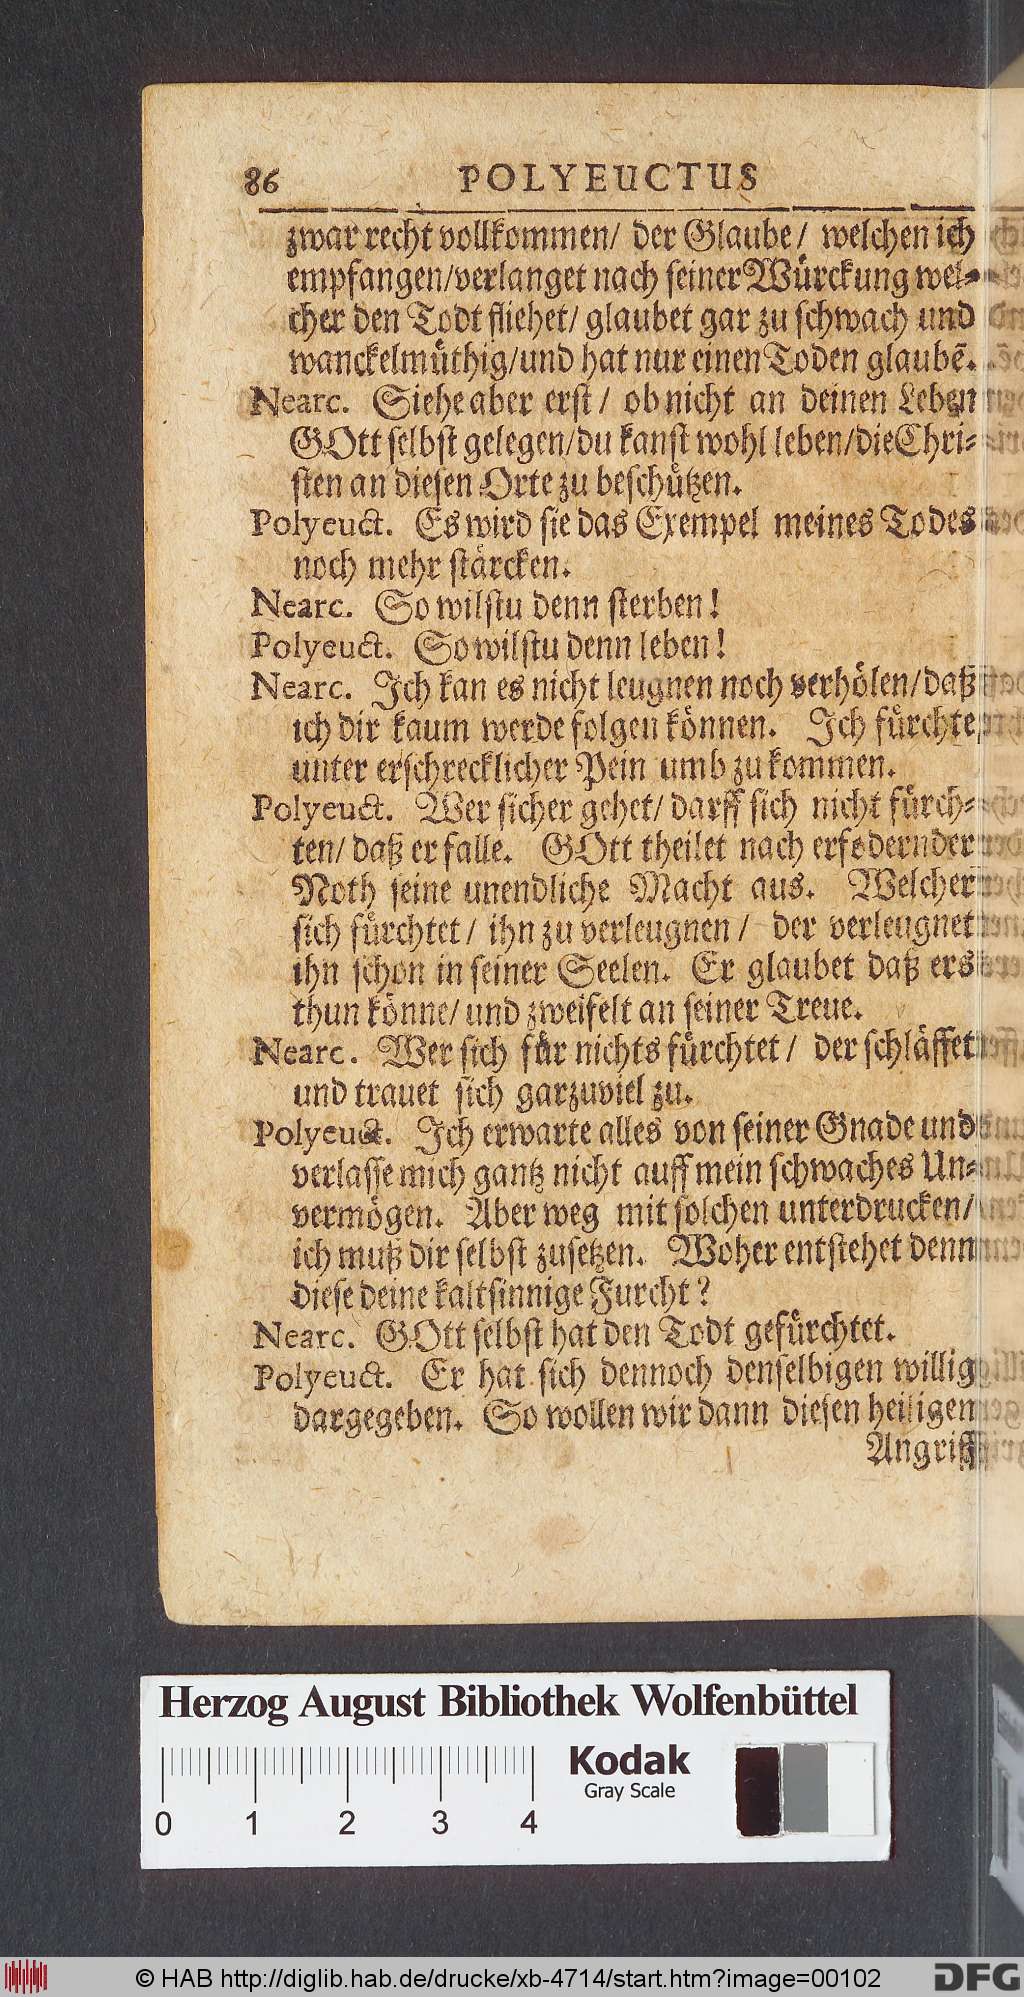 86 POLYEUCTUS
zwar recht vollkommen/ der Glaube/ welchen ich
empfangen/verlanget nach seiner Würckung wel-
cher den Todt fliehet/ glaubet gar zu schwach und
wanckelmüthig/und hat nur einen Toden glaubẽ.
Nearc. Siehe aber erst/ ob nicht an deinen Leben
GOtt selbst gelegen/du kanst wohl leben/die Chri-
sten an diesen Orte zu beschützen.
Polyeuct. Es wird sie das Exempel meines Todes
noch mehr stärcken.
Nearc. So wilstu denn sterben!
Polyeuct. So wilstu denn leben!
Nearc. Ich kan es nicht leugnen noch verhölen/daß
ich dir kaum werde folgen können. Ich fürchte,
unter erschrecklicher Pein umb zu kommen.
Polyeuct. Wer sicher gehet/ darff sich nicht fürch-
ten/ daß er falle. GOtt theilet nach erfodernder
Noth seine unendliche Macht aus. Welcher
sich fürchtet/ ihn zu verleugnen/ der verleugnet
ihn schon in seiner Seelen. Er glaubet daß ers
thun könne/ und zweifelt an seiner Treue.
Nearc. Wer sich für nichts fürchtet/ der schläffet
und trauet sich garzuviel zu.
Polyeuct. Ich erwarte alles von seiner Gnade und
verlasse mich gantz nicht auff mein schwaches Un-
vermögen. Aber weg mit solchen unterdrucken/
ich muß dir selbst zusetzen. Woher entstehet denn
diese deine kaltsinnige Furcht?
Nearc. GOtt selbst hat den Todt gefürchtet.
Polyeuct. Er hat sich dennoch denselbigen willig
dargegeben. So wollen wir dann diesen heiligen
Angriff
Herzog August Bibliothek Wolfenbüttel
Kodak
Gray Scale
0 1 2 3 4
© HAB http://diglib.hab.de/drucke/xb-4714/start.htm?image=00102
DFG